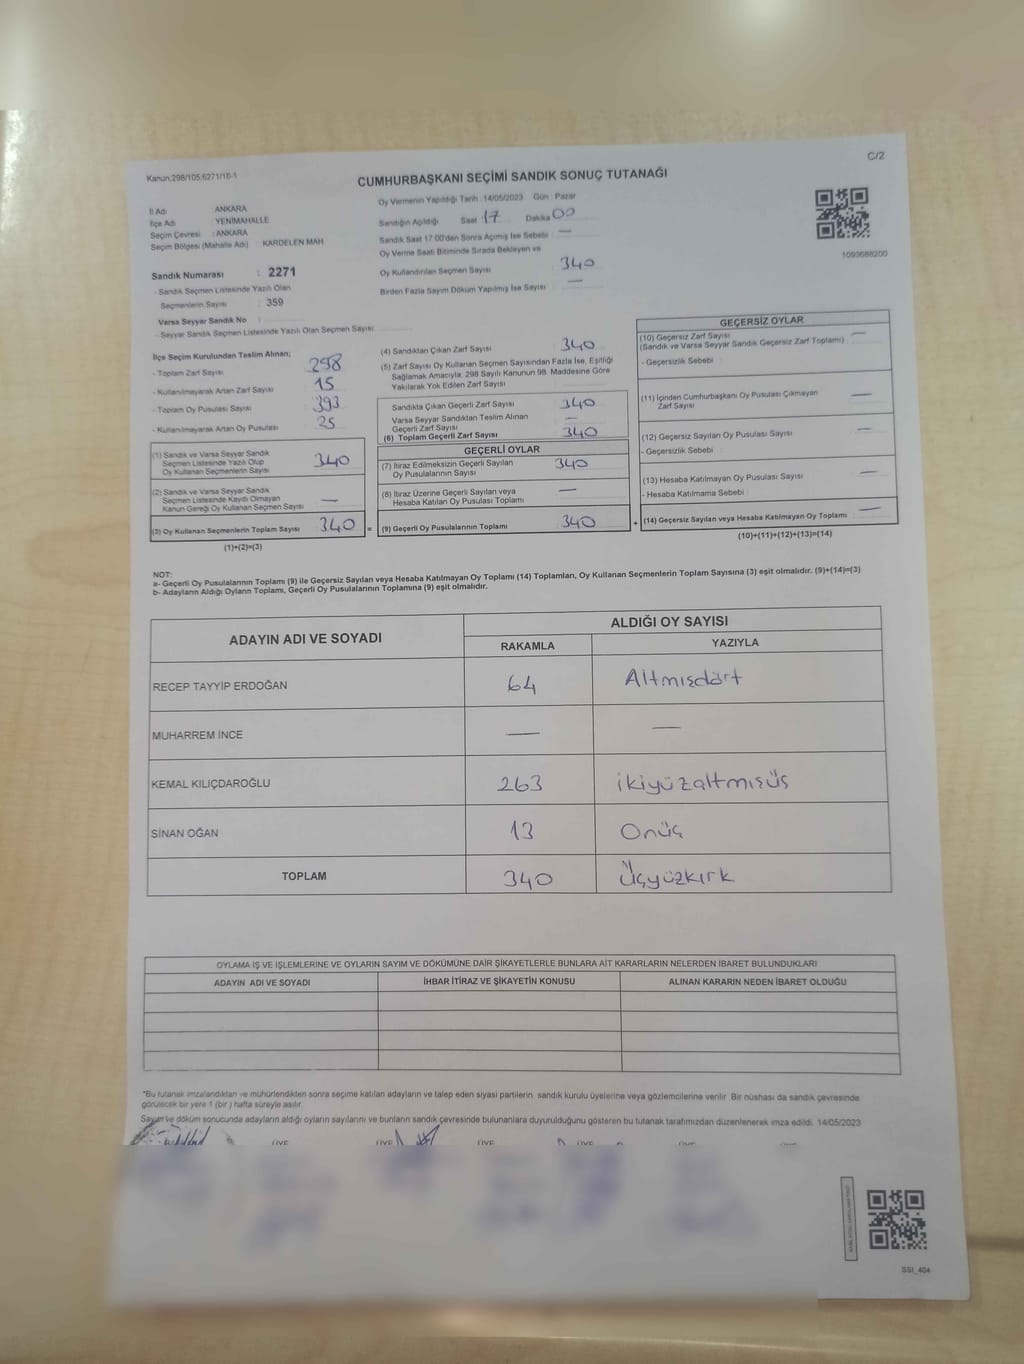 C/2
Kanun:298/105,6271/16-1
CUMHURBAŞKANI SEÇİMİ SANDIK SONUÇ TUTANAĞI
İl Adı : ANKARA
İlçe Adı : YENİMAHALLE
Seçim Çevresi : ANKARA
Seçim Bölgesi (Mahalle Adı) : KARDELEN MAH.
Sandık Numarası : 2271
- Sandık Seçmen Listesinde Yazılı Olan
Seçmenlerin Sayısı : 359
Varsa Seyyar Sandık No :
- Seyyar Sandık Seçmen Listesinde Yazılı Olan Seçmen Sayısı:
Oy Vermenin Yapıldığı Tarih :14/05/2023 Gün : Pazar
Sandığın Açıldığı Saat 17 Dakika 00
Sandık Saat 17.00'den Sonra Açılmış İse Sebebi : —
Oy Verme Saati Bitiminde Sırada Bekleyen ve
Oy Kullandırılan Seçmen Sayısı : 340
Birden Fazla Sayım Döküm Yapılmış İse Sayısı : —
1093688200
İlçe Seçim Kurulundan Teslim Alınan;
- Toplam Zarf Sayısı : 298
- Kullanılmayarak Artan Zarf Sayısı : 15
- Toplam Oy Pusulası Sayısı : 393
- Kullanılmayarak Artan Oy Pusulası : 25
(1) Sandık ve Varsa Seyyar Sandık
Seçmen Listesinde Yazılı Olup
Oy Kullanan Seçmenlerin Sayısı : 340
(2) Sandık ve Varsa Seyyar Sandık
Seçmen Listesinde Kayıtlı Olmayan
Kanun Gereği Oy Kullanan Seçmen Sayısı : —
(3) Oy Kullanan Seçmenlerin Toplam Sayısı : 340 =
(1)+(2)=(3)
(4) Sandıktan Çıkan Zarf Sayısı : 340
(5) Zarf Sayısı Oy Kullanan Seçmen Sayısından Fazla İse, Eşitliği
Sağlamak Amacıyla, 298 Sayılı Kanunun 98. Maddesine Göre
Yakılarak Yok Edilen Zarf Sayısı :
Sandıkta Çıkan Geçerli Zarf Sayısı : 340
Varsa Seyyar Sandıktan Teslim Alınan
Geçerli Zarf Sayısı : —
(6) Toplam Geçerli Zarf Sayısı : 340
GEÇERLİ OYLAR
(7) İtiraz Edilmeksizin Geçerli Sayılan
Oy Pusulalarının Sayısı : 340
(8) İtiraz Üzerine Geçerli Sayılan veya
Hesaba Katılan Oy Pusulası Toplamı : —
(9) Geçerli Oy Pusulalarının Toplamı : 340 +
GEÇERSİZ OYLAR
(10) Geçersiz Zarf Sayısı : —
(Sandık ve Varsa Seyyar Sandık Geçersiz Zarf Toplamı)
- Geçersizlik Sebebi :
(11) İçinden Cumhurbaşkanı Oy Pusulası Çıkmayan
Zarf Sayısı : —
(12) Geçersiz Sayılan Oy Pusulası Sayısı : —
- Geçersizlik Sebebi :
(13) Hesaba Katılmayan Oy Pusulası Sayısı : —
- Hesaba Katılmama Sebebi :
(14) Geçersiz Sayılan veya Hesaba Katılmayan Oy Toplamı : —
(10)+(11)+(12)+(13)=(14)
NOT:
a- Geçerli Oy Pusulalarının Toplamı (9) ile Geçersiz Sayılan veya Hesaba Katılmayan Oy Toplamı (14) Toplamları, Oy Kullanan Seçmenlerin Toplam Sayısına (3) eşit olmalıdır. (9)+(14)=(3)
b- Adayların Aldığı Oyların Toplamı, Geçerli Oy Pusulalarının Toplamına (9) eşit olmalıdır.
ADAYIN ADI VE SOYADI ALDIĞI OY SAYISI
RAKAMLA YAZIYLA
RECEP TAYYİP ERDOĞAN 64 Altmışdört
MUHARREM İNCE — —
KEMAL KILIÇDAROĞLU 263 ikiyüzaltmışüş
SİNAN OĞAN 13 Onüç
TOPLAM 340 Üçyüzkırk
OYLAMA İŞ VE İŞLEMLERİNE VE OYLARIN SAYIM VE DÖKÜMÜNE DAİR ŞİKAYETLERLE BUNLARA AİT KARARLARIN NELERDEN İBARET BULUNDUKLARI
ADAYIN ADI VE SOYADI İHBAR İTİRAZ VE ŞİKAYETİN KONUSU ALINAN KARARIN NEDEN İBARET OLDUĞU
*Bu tutanak imzalandıktan ve mühürlendikten sonra seçime katılan adayların ve talep eden siyasi partilerin sandık kurulu üyelerine veya gözlemcilerine verilir. Bir nüshası da sandık çevresinde
görülecek bir yere 1 (bir ) hafta süreyle asılır.
Sayım ve döküm sonucunda adayların aldığı oyların sayılarını ve bunların sandık çevresinde bulunanlara duyurulduğunu gösteren bu tutanak tarafımızdan düzenlenerek imza edildi. 14/05/2023
SSI_404